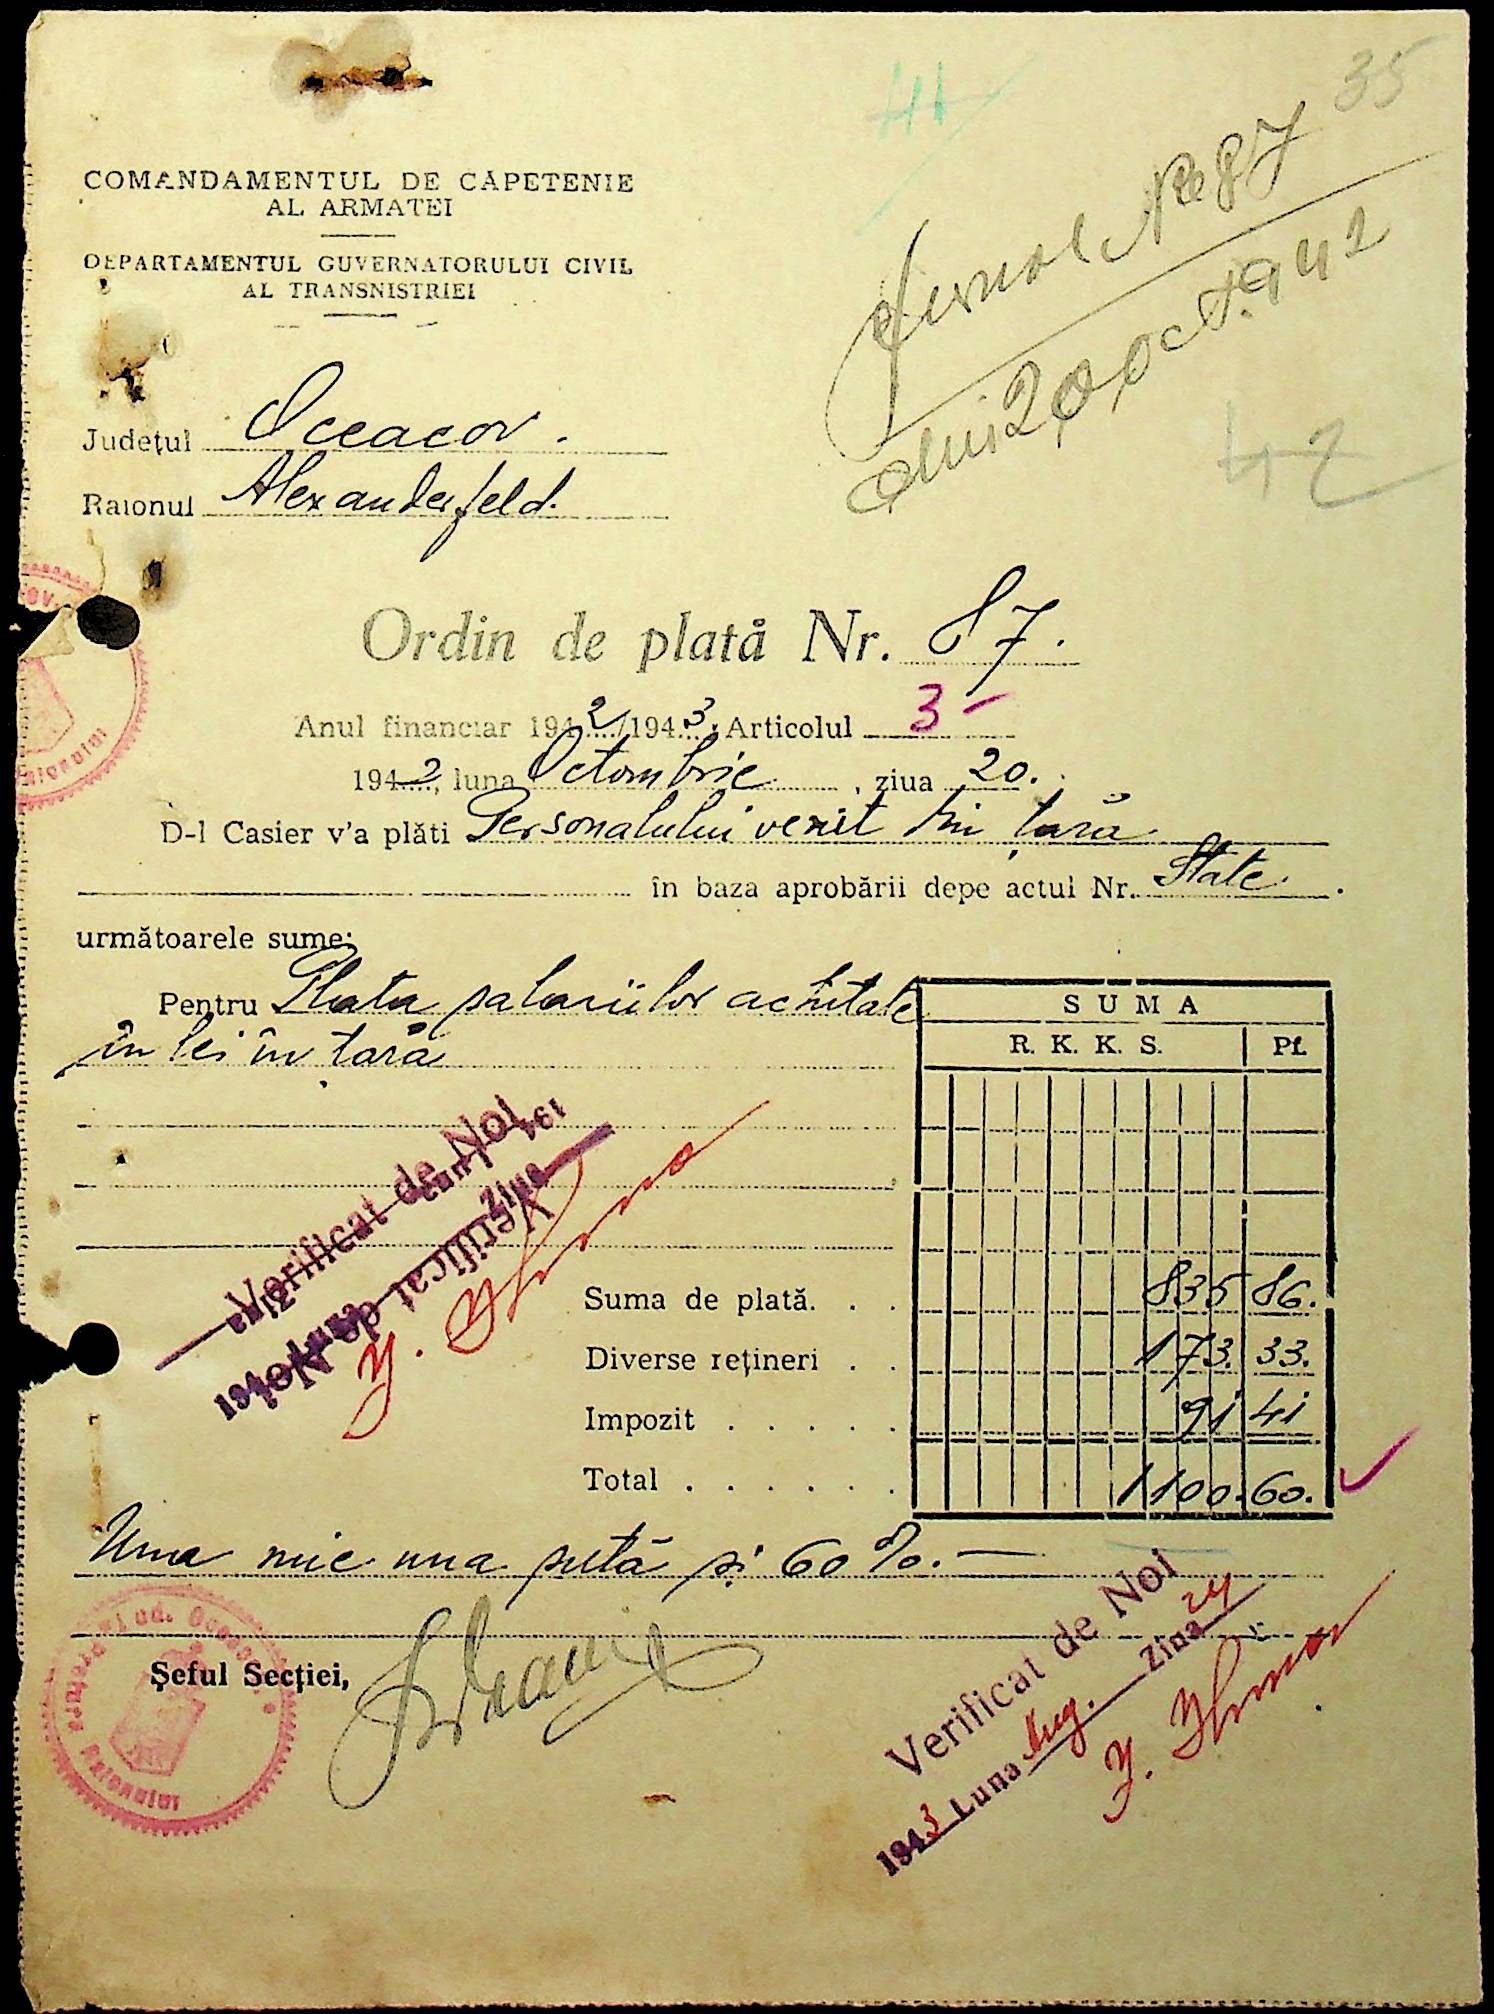 35
41
COMANDAMENTUL DE CAPETENIE
AL ARMATEI
DEPARTAMENTUL GUVERNATORULUI CIVIL
AL TRANSNISTRIEI
Jurnal No 87
din 20 oct. 942
42
Județul Oceacov.
Raionul Alexanderfeld.
Ordin de plată Nr. 87.
Anul financiar 1942/1943, Articolul 3 -
1942, luna Octombrie, ziua 20.
D-l Casier v'a plăti Personalului venit din țară
în baza aprobării depe actul Nr. State.
următoarele sume:
Pentru Plata salariilor achitate
în lei în țară
SUMA
R. K. K. S. Pf.
Verificat de Noi
194 Luna Ziua
Verificat de Noi
194 Luna Ziua
Suma de plată. . . 835 86.
Diverse rețineri . . 173. 33.
Impozit . . . . . 91 41
Total . . . . . . 1100. 60.
Una mie una sută și 60 %. —
Șeful Secției,
Pretura Raionului
Verificat de Noi
1943 Luna Aug. Ziua 24